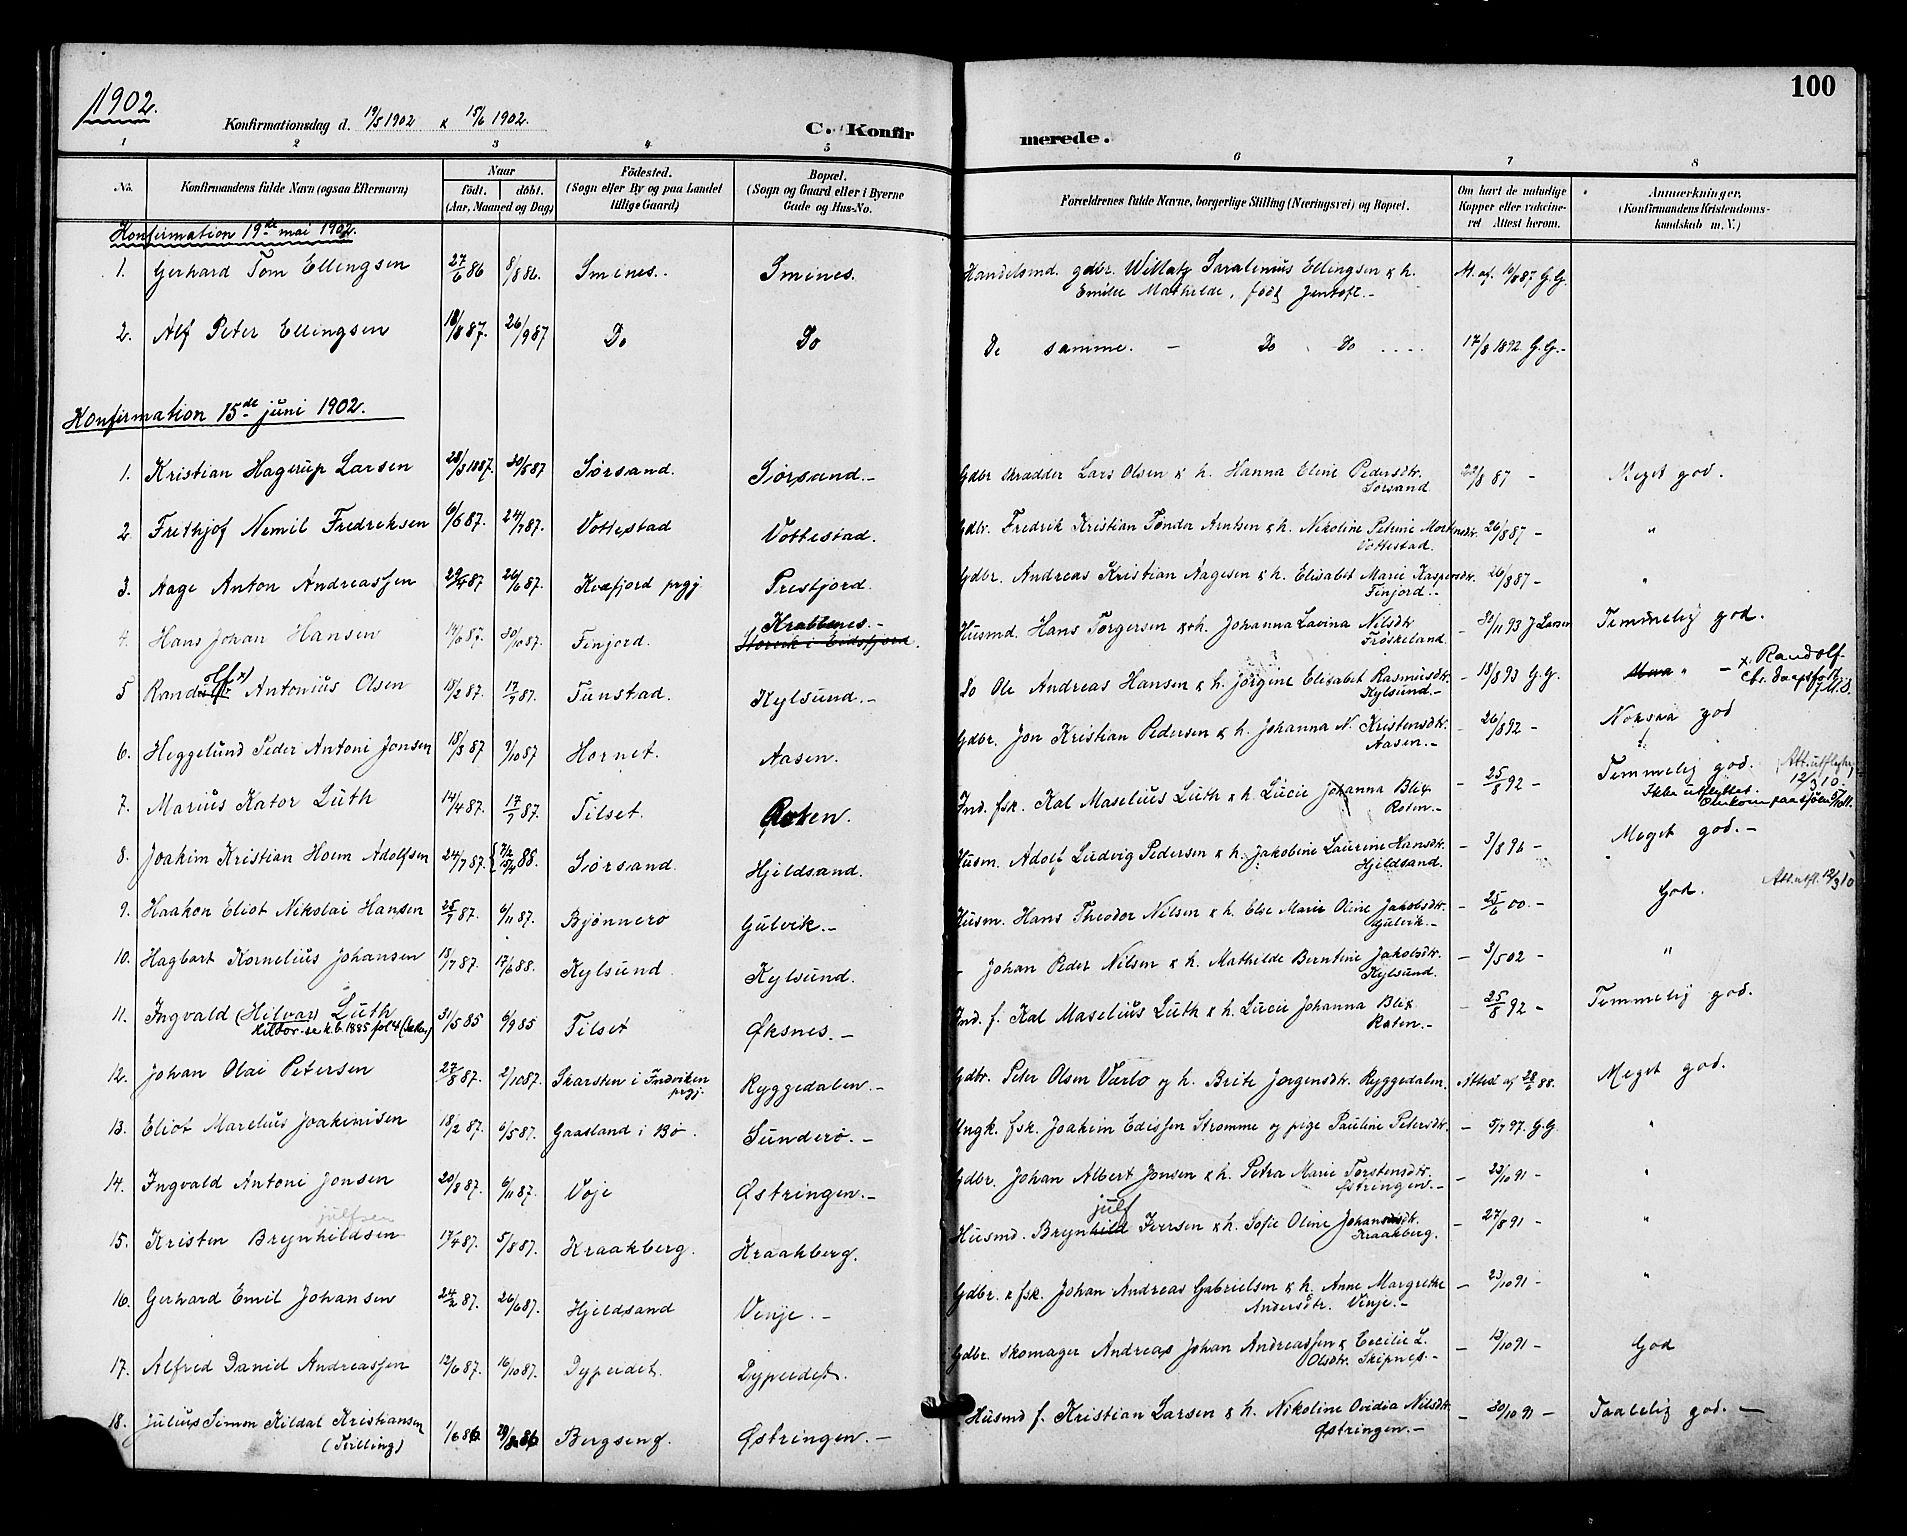 100
1902.
Konfirmationsdag d. 19/5 1902 & 15/6 1902.
C. Konfirmerede.
1 2 3 4 5 6 7 8
No.
Konfirmandens fulde Navn (ogsaa Efternavn)
Naar
födt. döbt.
(Aar, Maaned og Dag)
Födested.
(Sogn eller By og paa Landet
tillige Gaard)
Bopæl.
(Sogn og Gaard eller i Byerne
Gade og Hus-No.
Forældrenes fulde Navne, borgerlige Stilling (Næringsvei) og Bopæl.
Om havt de naturlige
Kopper eller vakcine-
ret Attest herom.
Anmærkninger,
(Konfirmandens Kristendoms-
kundskab m. V.)
Konfirmation 19de mai 1902.
1. Gerhard Tom Ellingsen 27/6 86 8/8 86. Smines. Smines. Handelsmd. gdbr. Willatz Saralenius Ellingsen & h. At. af. 16/8 87 G.G.
Emilie Mathilde, født Jentoft.-
2. Alf Peter Ellingsen 18/8 87. 26/9 87 Do Do De samme. - Do Do 17/8 1892 G.G.-
Konfirmation 15de juni 1902.
1. Kristian Hagerup Larsen 28/3 1887. 30/5 87 Sørsand. Sørsand.- Gdbr skrædder Lars Olsen & h. Hanna Eline Pedersdtr. 22/8 87 - Meget god.
Sørsand
2 Frithjof Nemil Fredreksen 6/6 87. 24/7 87. Vottestad Vottestad. Gdbr. Fredrik Kristian Tønder Arntsen & h. Nikoline Petrine Mortensdtr. 26/8 87 - "
Vottestad.
3. Aage Anton Andreassen 29/4 87 26/6 87. Kvæfjord prgj Prestfjord. Gdbr. Andreas Kristian Aagesen & h. Elisabet Marie Kaspersdtr. 26/8 87 - "
Finjord.-
4. Hans Johan Hansen 14/6 87. 30/10 87. Finjord. Krabbenes.- Husmd. Hans Torgersen & h. Johanna Lavina Nilsdtr - 30/11 93 J Larsen Temmelig god.
Storvik i Eidsfjord. Frøskeland.
olf x)
5 Randulf Antonius Olsen 18/2 87. 17/7 87. Tunstad. Kylsund.- Do Ole Andreas Hansen & h. Jørgine Elisabet Rasmusdtr. - 18/8 93 G.G. " - x Randolf
Kylsund.-
6. Heggelund Peder Antoni Jonsen 18/3 87 9/10 87. Hornet. Aasen. Gdbr. Jon Kristian Pedersen & h. Johanna N. Kristensdtr. - 26/8 92 - Noksaa god
Aasen.-
7. Marius Kator Luth 14/4 87. 17/7 87. Tilset. Roten. Ind. fsk. Kal Maselius Luth & h. Lucie Johanna Blix - 25/8 92 - Temmelig god. Att. utflytn. 12/3 10.
Roten.- Ikke utflyttet.
8. Joakim Kristian Hoem Adolfsen 24/7 87. 7/2 15/4 88. Sørsand. Hjeldsand. Husm. Adolf Ludvig Pedersen & h. Jakobine Laurine Hansdtr. - 3/8 96 - Meget god.-
Hjeldsand.
9. Haakon Eliot Nikolai Hansen 25/7 87. 6/11 87. Bjønnerø Gulvik.- Husm. Hans Theodor Nilsen & h. Else Marie Oline Jakobsdtr. - 25/6 00.- God. Att. utfl. 12/3 10
Gulvik.-
10. Hagbart Kornelius Johansen 18/7 87. 17/6 88. Kylsund. Kylsund. - Johan Peder Nilsen & h. Mathilde Berntine Jakobsdtr. - 3/5 02 - "
Kylsund.
11. Ingvald (Hilvar) Luth 31/5 85 6/9 85 Tilset Øksnes.- Ind. f. Kal Maselius Luth & h. Lucie Johanna Blix - 25/8 92 - Temmelig god.
Roten.-
12. Johan Olai Petersen 27/8 87. 2/10 87. Skarsten i Indviken Ryggedalen.- Gdbr. Peter Olsen Varlo og h. Brite Jørgensdtr. Ryggedalen. Attest af 28/6 88. Meget god.
prgj.
13. Eliot Marelius Joakimsen 18/2 87. 6/5 87. Gaasland i Bø. Sunderø.- Ungk. fsk. Joakim Edissen Strømme og pige Pauline Petersdtr. - 5/7 97. G.G. "
14. Ingvald Antoni Jonsen 20/8 87. 6/11 87. Voje Østringen.- Gdbr. Johan Albert Jonsen & h. Petra Marie Torstensdtr. - 23/10 91 - "
Østringen.-
julfsen julf
15. Kristen Brynhildsen 17/4 87. 5/8 87. Kraakberg. Kraakberg. Husmd. Brynhild Iversen & h. Sofie Oline Johansdtr. - 27/8 91 - "
Kraakberg.
16. Gerhard Emil Johansen 24/2 87. 26/6 87. Hjeldsand Venje.- Gdbr. & fsk. Johan Andreas Gabrielsen & h. Anne Margrethe - 23/10 91 - "
Andersdtr. Venje.-
17. Alfred Daniel Andreassen 12/6 87. 16/10 87. Dypeidet. Dypeidet. Gdbr. skomager Andreas Johan Andreassen & Cecilie L. - 13/10 91 - God
Olsdtr. Skipnes.-
18. Julius Simon Kildal Kristiansen 1/6 86 29/8 86 Bergseng. Østringen.- Husmd f. Kristian Larsen & h. Nikoline Ovidia Nilsdtr. - 30/10 91 - Taalelig god.-
(Tvilling) Østringen.-